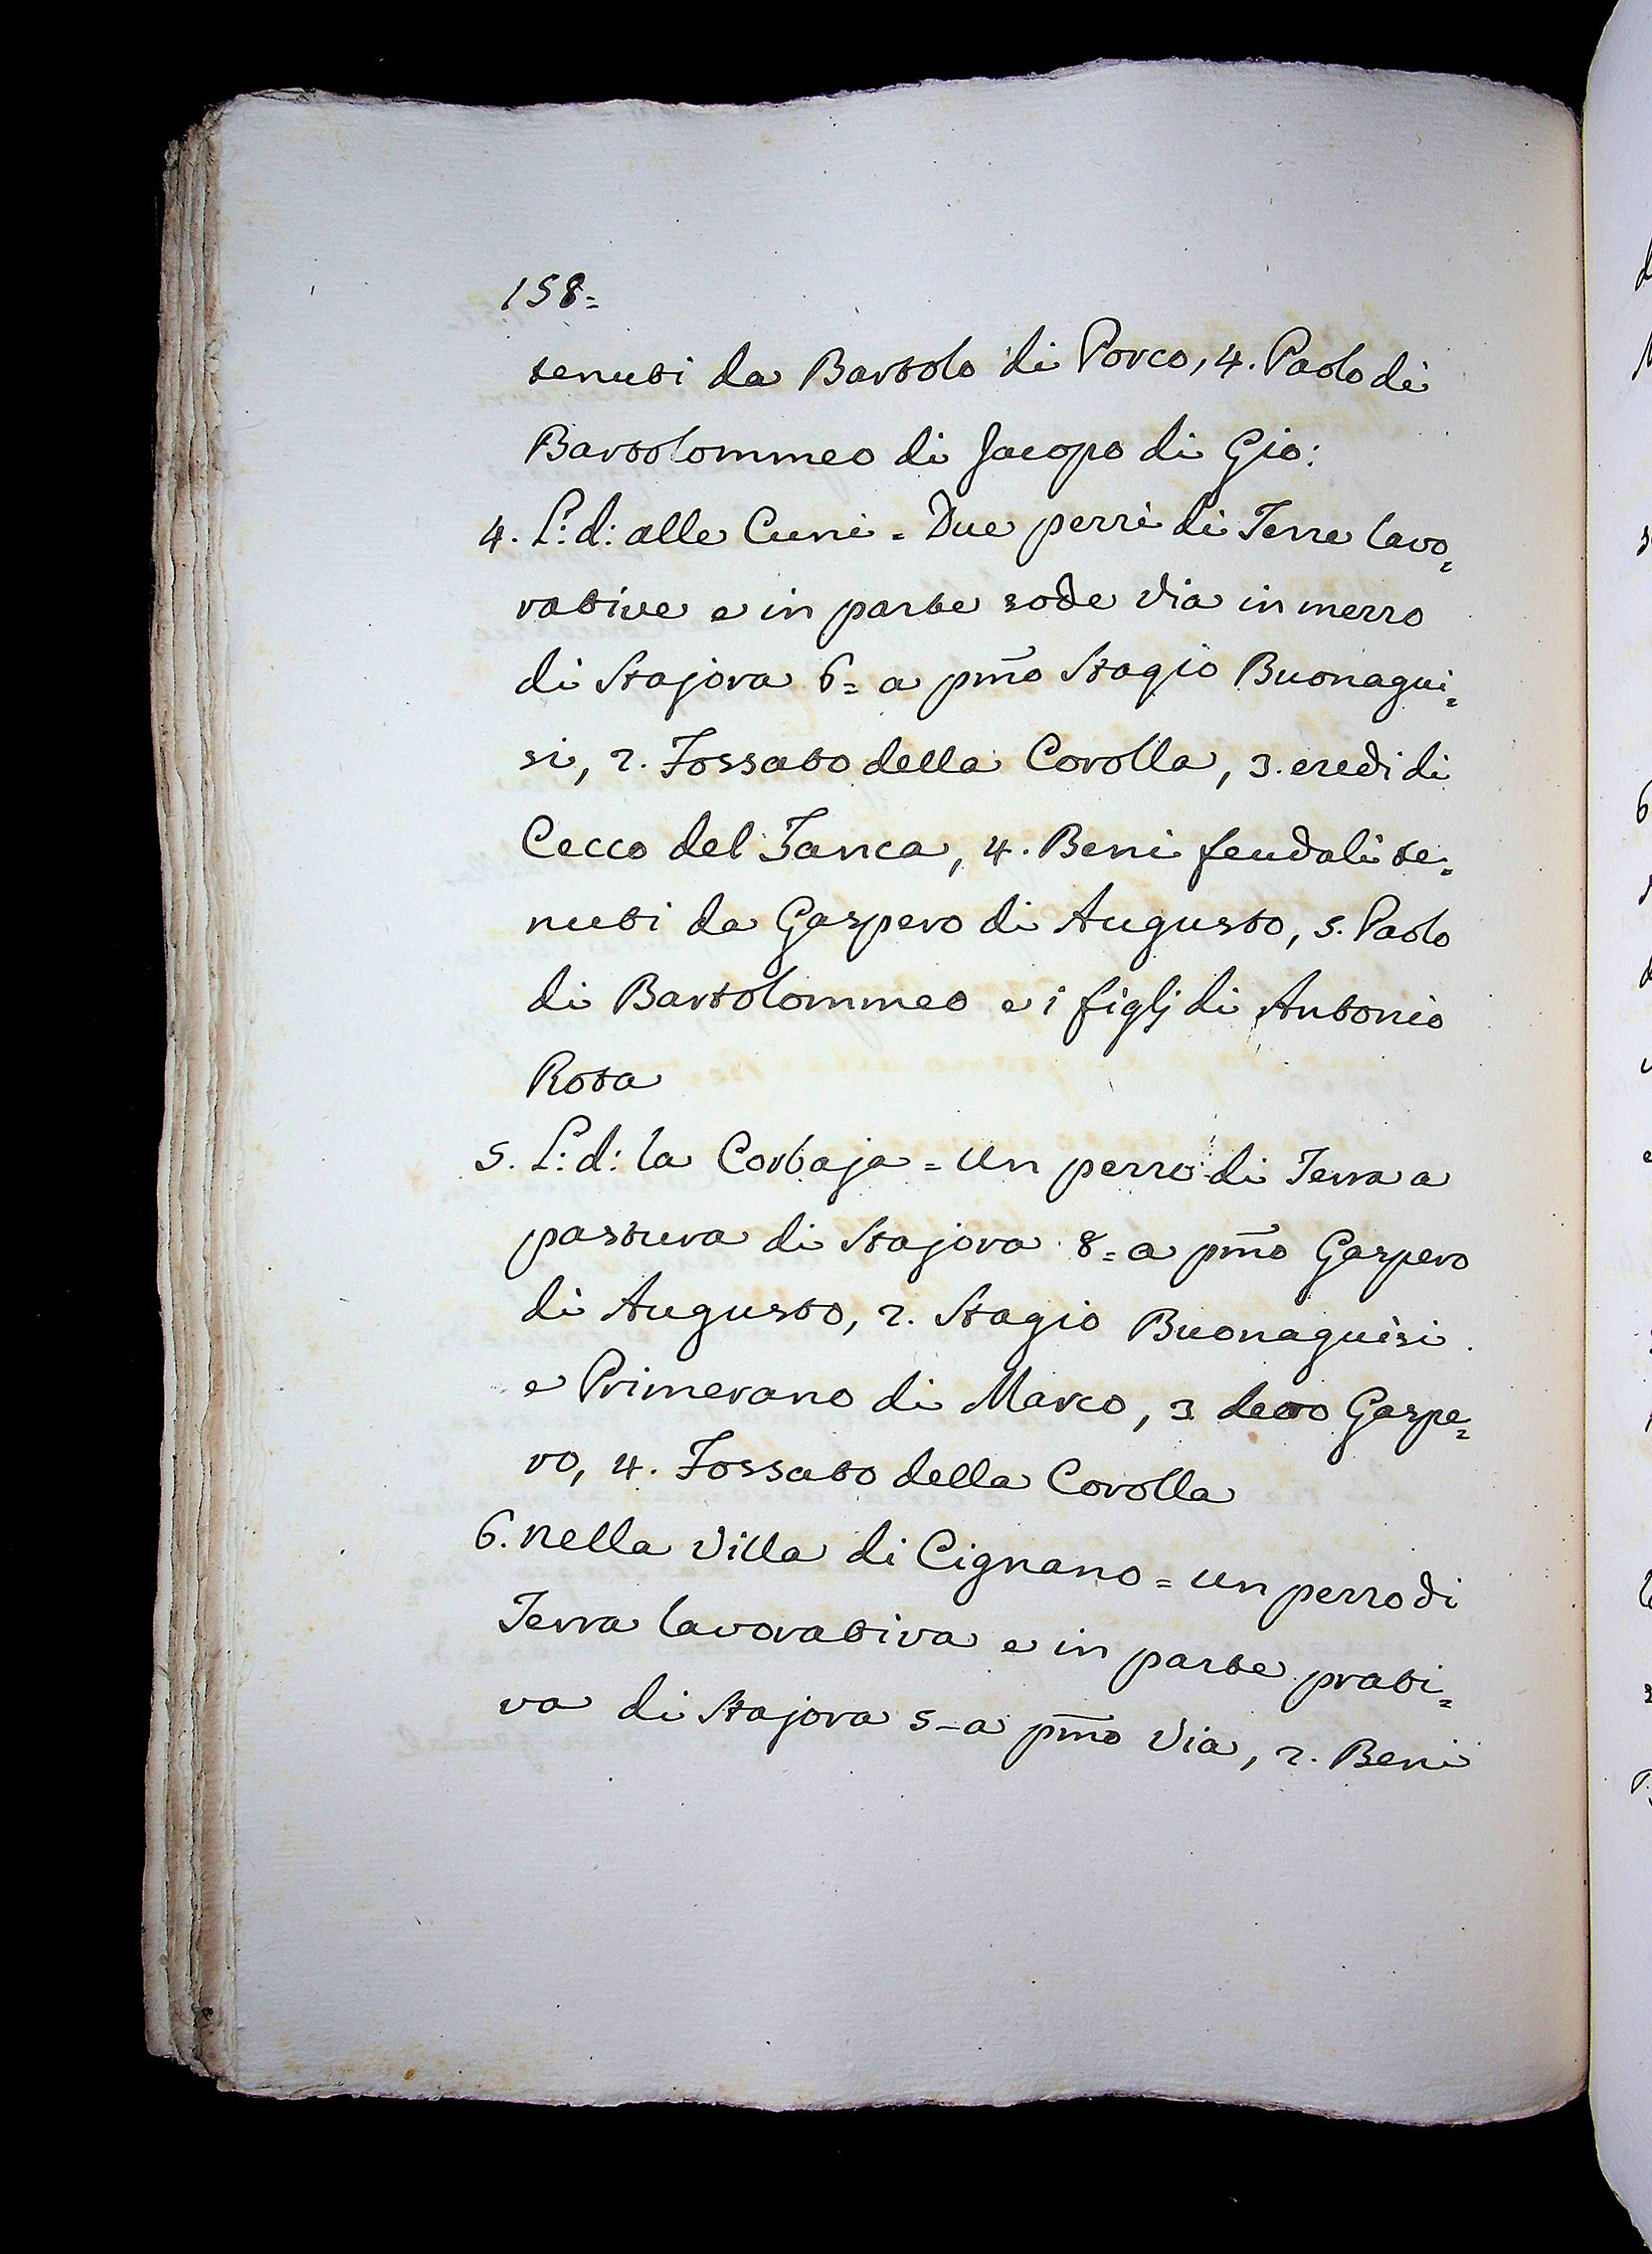 158=
tenuti da Bartolo di Porco, 4. Paolo di
Bartolommeo di Jacopo di Gio:
4. L: d: alle Cuni = Due pezzi di Terre lavo=
rative e in parte sode via in mezzo
di Stajora 6= a pm̃o Stagio Buonagui=
si, 2. Fossato della Corolla, 3. eredi di
Cecco del Tanca, 4. Beni feudali te=
nuti da Gaspero di Augusto, 5. Paolo
di Bartolommeo e i figlj di Antonio
Rota
5. L: d: la Corbaja = Un pezzo di Terra a
pastura di Stajora 8= a pm̃o Gaspero
di Augusto, 2. Stagio Buonaguisi
e Primerano di Marco, 3 detto Gaspe=
ro, 4. Fossato della Corolla
6. nella Villa di Cignano = un pezzo di
Terra lavorativa e in parte prati=
va di Stajora 5 - a pm̃o Via, 2. Beni